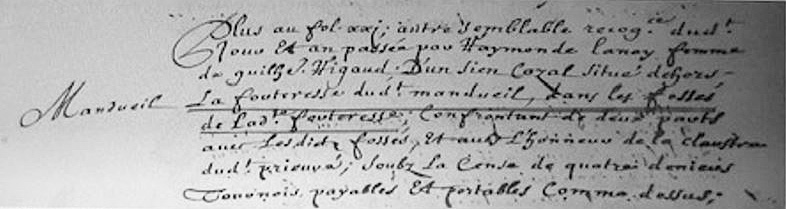 Plus au fol. xxj; autre semblable recog.ce dud.t
Jour Et an passée par Raymonde Lanoy femme
de guilhe. Rigaud, D'un sien Cazal situé dehors
Mandueil La forteresse dud.t mandueil, dans les fossés
de Lad.te forteresse; Confrontant de deux partz
avec Lesditz fossés, Et aux L'honneur de la Claustre
dud.t prieuré; soubz La Cense de quatre deniers
Tournois payables Et portables Comme dessus;